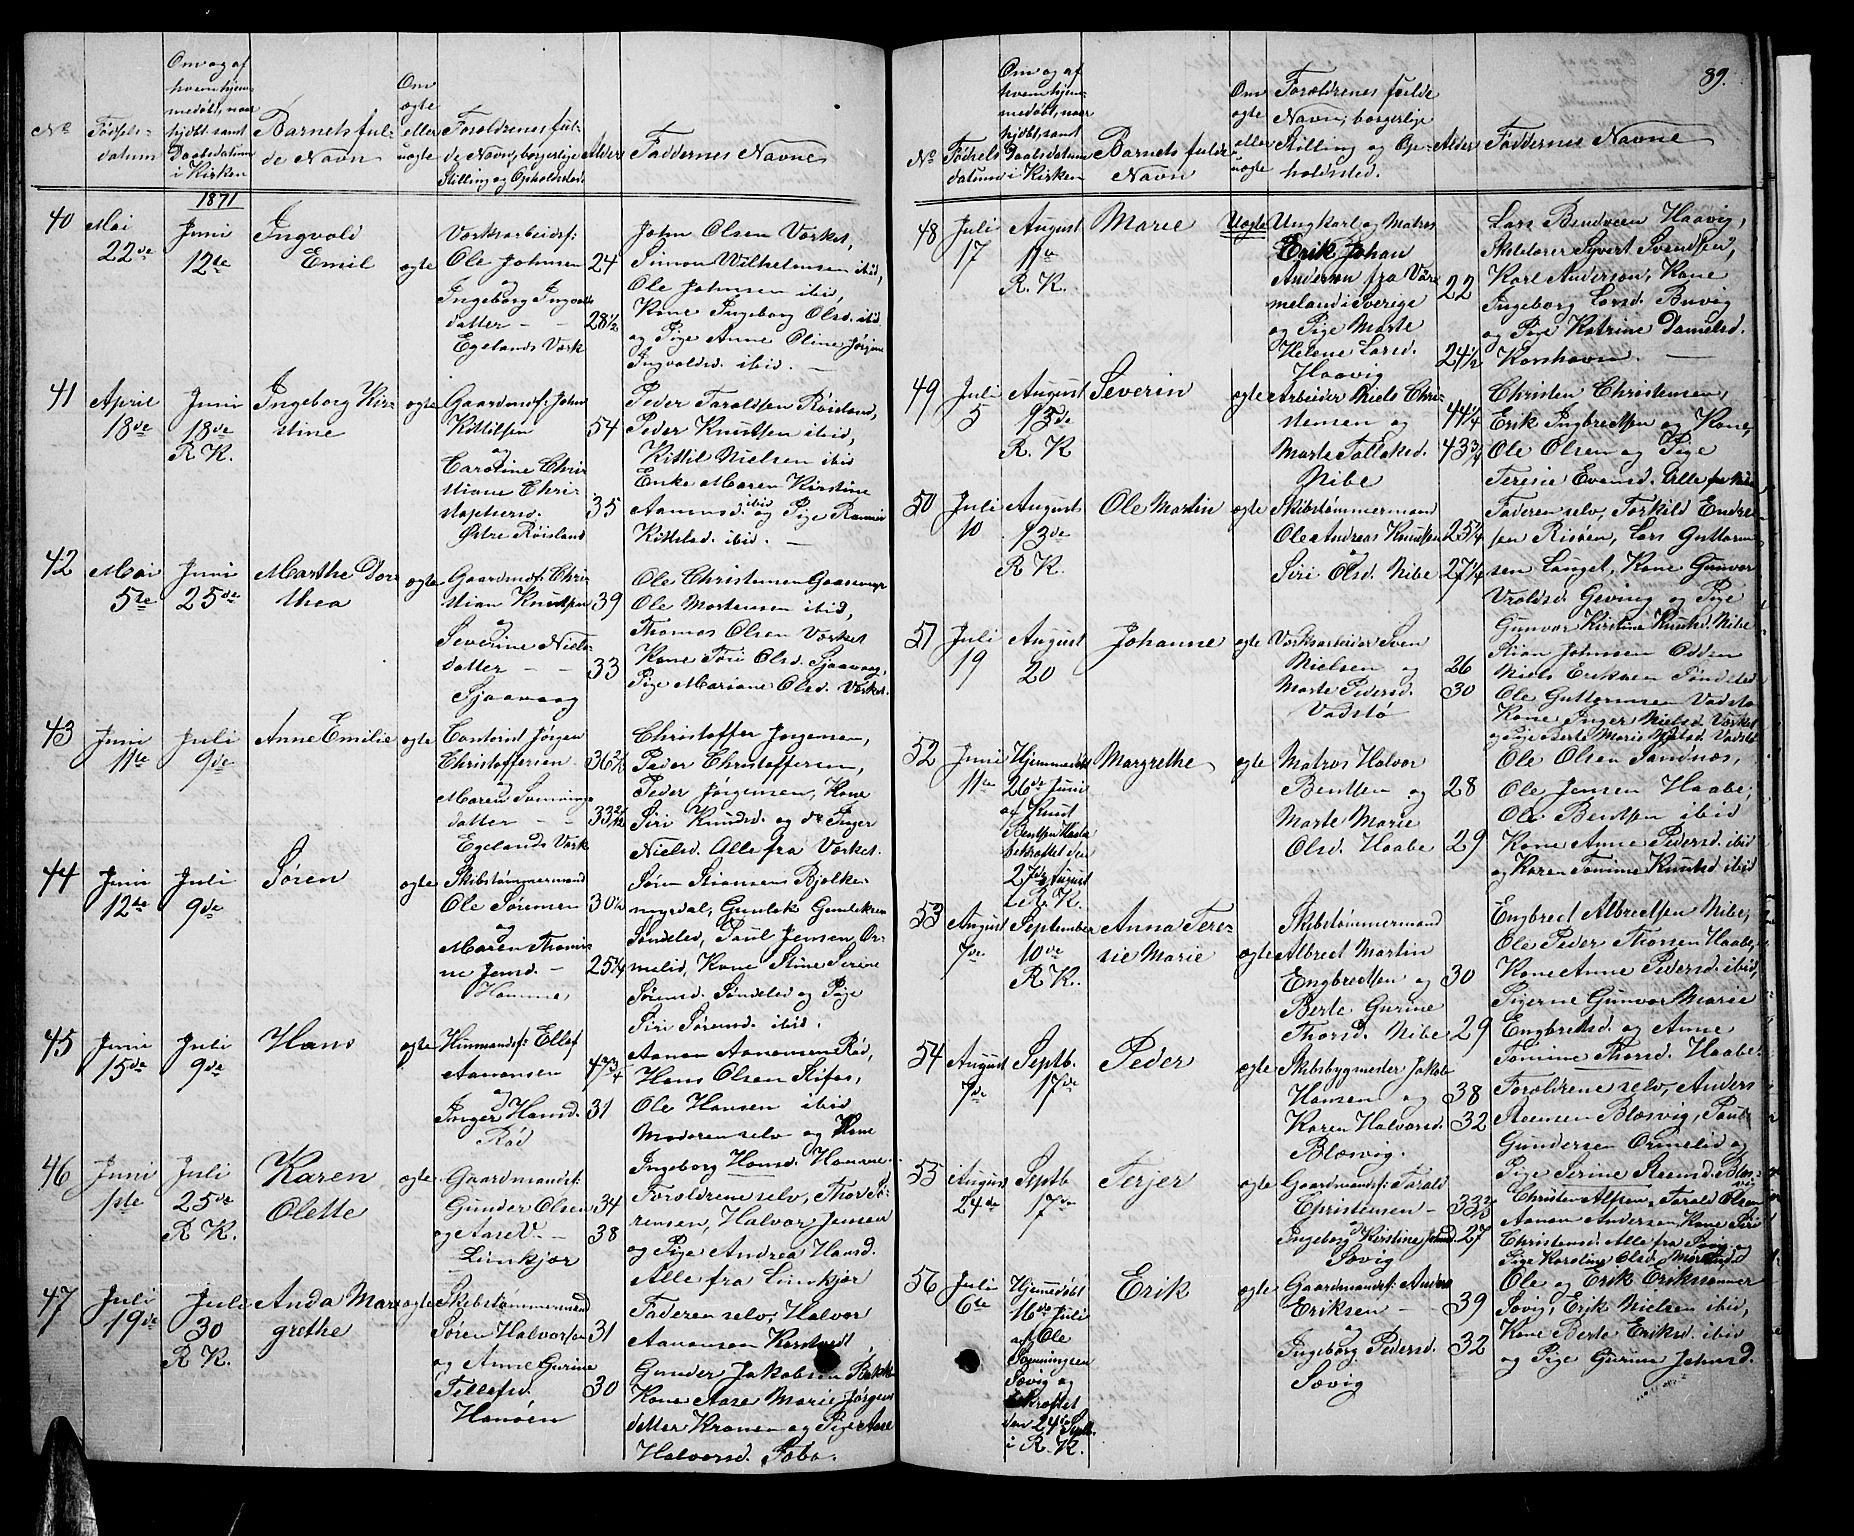 89.
No
Fødsels-
datum
Om og af
hvem hjem-
medøbt, naar
hjdbt. samt
Daabsdatum
i Kirken
Barnets ful-
de Navn
Om
ægte
eller
uægte
Forældrenes ful-
de Navn, borgerlige
Stilling og Opholdsted.
Alder
Faddernes Navne
1871
40
Mai
22de
Juni
12te
Ingvald
Emil
ægte
Værksarbeidsf:
Ole Johnsen
og
Ingeborg Ingvalds
datter
Egelands Værk
24
28 1/2
John Olsen Værket,
Simon Wilhelmsen ibid,
Ole Johnsen ibid,
Kone Ingeborg Olsd. ibid
og Pige Anne Oline Jørgine
Ingvaldsd. ibid.
41
April
18de
Juni
18de
R. K.
Ingeborg Kir-
stine
ægte
Gaardmdf: John
Kittilsen
og
Caroline Chri
stiane Chri
stophersd.
Østre Røisland
54
35
Peder Taraldsen Røisland,
Peder Knudsen ibid,
Kittil Nielsen ibid
Enke Maren Kirstine
Aanonsd. ibid og Pige
Kittilsd. ibid.
42
Mai
5te
Juni
25de
Marthe Doro
thea
ægte
Gaardmdf: Chri
stian Knudsen
og
Severine Niels
datter
Sjaavaag
39
33
Ole Christensen
Ole Mortensen ibid,
Thomas Olsen Værket
Kone Tori Olsd. Sjaavaag,
Pige Mariane Olsd. Værket.
43
Juni
11te
Juli
9de
Anne Emilie
ægte
Contorist Jørgen
Christoffersen
og
Maren Sønninge
datter
Egelands Værk
Christoffer Jørgensen,
Peder Christoffersen,
Peder Jørgensen, Kone
Siri Knudsd. og do Inger
Nielsd. Alle fra Værket.
44
Juni
12te
Juli
9de
Søren
ægte
Skibstømmermand
Ole Sørensen
og
Maren Thomi-
ne Jensd.
Hamme,
30 1/4
25 1/4
Søren Stiansen Bjelke-
myrdal, Gunlek Gunleksen
Søndeled, Paul Jensen Or-
melid, Kone Stine Serine
Sørensd. Søndeled og Pige
Siri Sørensd. ibid.
45
Juni
15de
Juli
9de
Hans
ægte
Huusmandsf: Ellef
Aanonsen
og
Inger Hansd.
Rød
47 3/4
31
Aanon Aanonsen Rød,
Hans Olsen Sifos,
Ole Hansen ibid
Moderen selv og Kone
Ingeborg Hansd. Hamme.
46
Juni
1ste
Juli
25de
R. K.
Karen
Olette
ægte
Gaardmandsf:
Gunder Olsen
og Aased
Limkjær
34
38
Forældrene selv, Thor Sø-
rensen, Halvor Jensen
og Pige Andrea Hansd.
Alle fra Limkjær
47
Juli
19de
Juli
30
R. K.
Anda Mar-
grethe
ægte
Skibstømmermand
Søren Halvorsen
og Anne Gurine
Tellefsd.
Hanøen
31
30
Faderen selv, Halvor
Aanonsen
Gunder Jakobsen
Kone Aase Marie Jørgens
datter Kranen og Pige Aase
Halvorsd.
No
Fødsels
datum
Om og af
hvem hjem-
medøbt, naar
hjdbt, samt
Daabsdatum
i Kirken
Barnets fulde
Navn
Om
ægte
eller
uægte
Forældrenes fulde
Navn, borgerlige
Stilling og Op-
holdsted.
Alder
Faddernes Navne
48
Juli
17
August
11te
R. K.
Marie
Uægte
Ungkarl og Matros
Erik Johan
Anderson fra Vær
meland i Sverige
og Pige Marte
Helene Larsd.
Haavig
22
24 1/2
Lars Bendixen Haavig,
Skibsfører Syvert Svendsen,
Karl Anderson, Kone
Ingeborg Larsd. Buvig
og Pige Katrine Danielsd.
Korshavn.
49
Juli
5
August
13de
R. K
Severin
ægte
Arbeider Niels Chri-
stensen og
Marte Tallaksd.
Nibe
44 1/4
43 3/4
Christen Christensen,
Erik Ingbretsen og Kone,
Ole Olsen og Pige
Teresie Evensd. Alle fra Nibe
50
Juli
10
August
13de
R. K.
Ole Martin
ægte
Skibstømmermand
Ole Andreas Knudsen
og
Siri Olsd. Nibe
25 1/4
27 1/4
Faderen selv, Torkild Endre
sen Risøen, Lars Guttorm
sen Langet, Kone Gunvor
Vraldsd. Geving og Pige
Gunvor Kirstine Knudsd. Nibe
51
Juli
19
August
20
Johanne
ægte
Værksarbeider Sven
Nielsen og
Marte Pedersd.
Vadstø
26
30
Stian Johnsen Odden
Niels Eriksen Søndeled
Ole Guttormsen Vadstø
Kone Inger Nielsd. Værket
og Pige Berte Marie Nielsd. Vadstø
52
Juni
11te
Hjemmedøbt
26de Juni
af Knud
Bentsen Haabe
bekræftet den
27de August
i R. K.
Margrethe
ægte
Matros Halvor
Bentsen og
Marte Marie
Olsd. Haabe
28
29
Ole Olsen Sandnæs,
Ole Jensen Haabe,
Ole Bentsen ibid
Kone Anne Pedersd. ibid
og Karen Tomine Knudsd. ibid
53
August
7de
September
10de
R. K.
Anna Tere-
sie Marie
ægte
Skibstømmermand
Albret Martin
Engbretsen og
Berte Gurine
Thorsd. Nibe
30
29
Engbret Albretsen Nibe,
Ole Peder Thorsen Haabe,
Kone Anne Pedersd. ibid,
Pigerne Gunvor Marie
Engbretsd. og Anne
Tomine Thorsd. Haabe
54
August
7de
Septb.
17de
Peder
ægte
Skibsbygmester Jakob
Hansen og
Karen Halvorsd.
Blæsvig.
38
32
Forældrene selv, Anders
Blæsvig, Paul
Gundersen Ormelid og
Pige Serine Blæs-
55
August
24de
Septb
17de
Terjer
ægte
Gaardmandsf: Tarald
Christensen
og
Ingeborg Kirstine
Søvig
27
Christen Alfsen, Tarald Olsen
Aanon Andersen, Kone Siri
Christensd. Alle fra Søvig og
Pige Karoline Olsd.
56
Juli
6te
Hjemedøbt
16de Juli
af Ole
Sønningsen
Søvig og
bekræftet
den 24de Septb.
i R. K.
Erik
ægte
Gaardmandsf:
Eriksen
og
Ingeborg Pedersd.
Søvig
39
32
Ole og Erik Erikssønner
Søvig, Erik Nielsen ibid,
Kone Berta Eriksd. ibid
og Pige Gurine Johnsd.